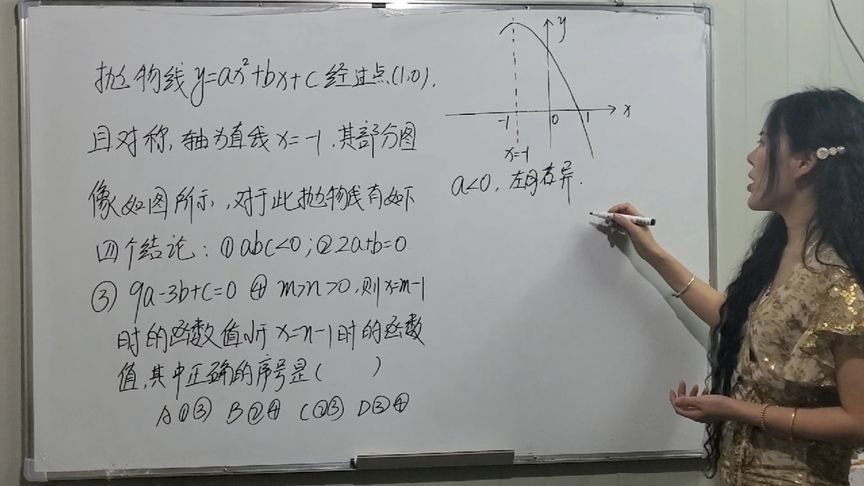 抛物线y=ax²+bx+c经过点(1,0),
且对称,轴为直线x=-1,其部分图
像如图所示,对于此抛物线有如下
四个结论:①abc<0;②2a+b=0
③9a-3b+c=0 ④m>n>0,则x=m-1
时的函数值小于x=n-1时的函数
值,其中正确的序号是( )
A①③ B②④ C②③ D③④
y
x
-1 0 1
x=-1
a<0,左同右异.